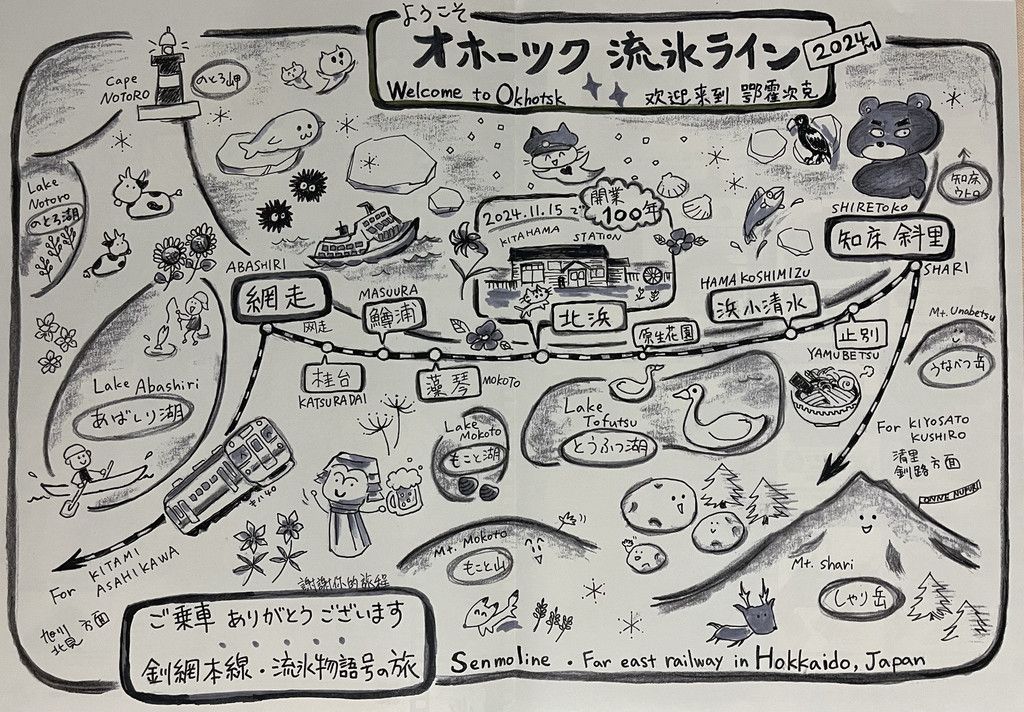 ようこそ
オホーツク 流氷ライン
2024
Welcome to Okhotsk
欢迎来到 鄂霍次克
Cape
NOTORO
のとろ岬
Lake
Notoro
のとろ湖
知床
ウトロ
SHIRETOKO
知床 斜里
SHARI
2024.11.15で
開業
100年
KITAHAMA STATION
北浜
ABASHIRI
網走
网走
MASUURA
鱒浦
桂台
KATSURADAI
藻琴
MOKOTO
原生花園
HAMAKOSHIMIZU
浜小清水
止別
YAMUBETSU
Mt. Unabetsu
うなべつ岳
Lake Abashiri
あばしり湖
Lake
Mokoto
もこと湖
Lake
Tofutsu
とうふつ湖
For KIYOSATO
KUSHIRO
清里
釧路 方面
キハ40
For KITAMI
ASAHIKAWA
旭川
北見 方面
Mt. Mokoto
もこと山
ONNE NUPURI
Mt. shari
しゃり岳
謝謝你的旅程
ご乗車 ありがとうございます
釧網本線・流氷物語号の旅
Senmoline・Far east railway in Hokkaido, Japan